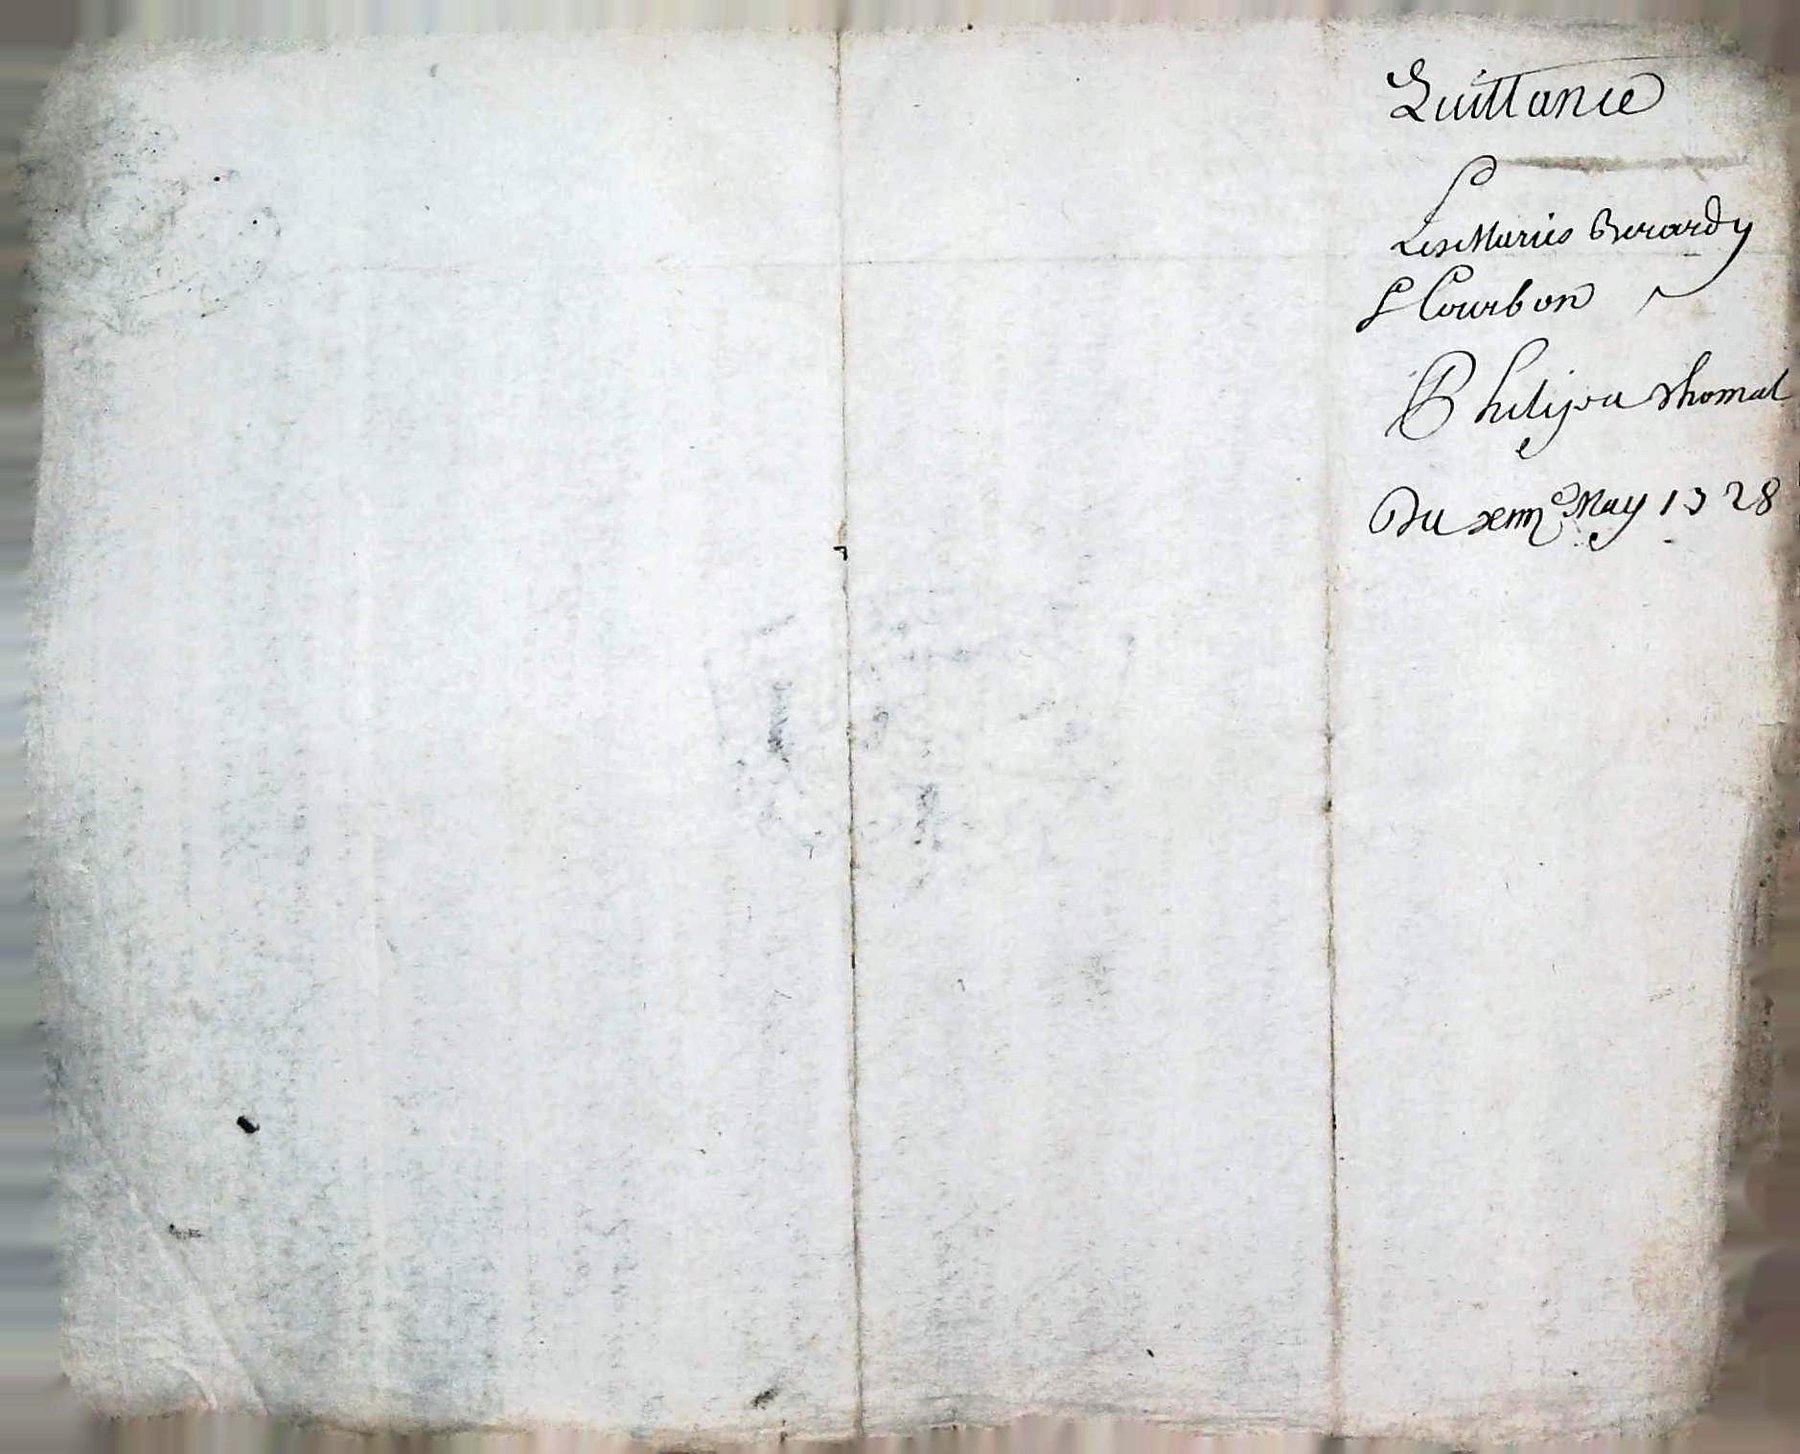 Quittance
P
Les Maries Berardy
& Courbon
Philipea Thomas
Du xem.e May 1728